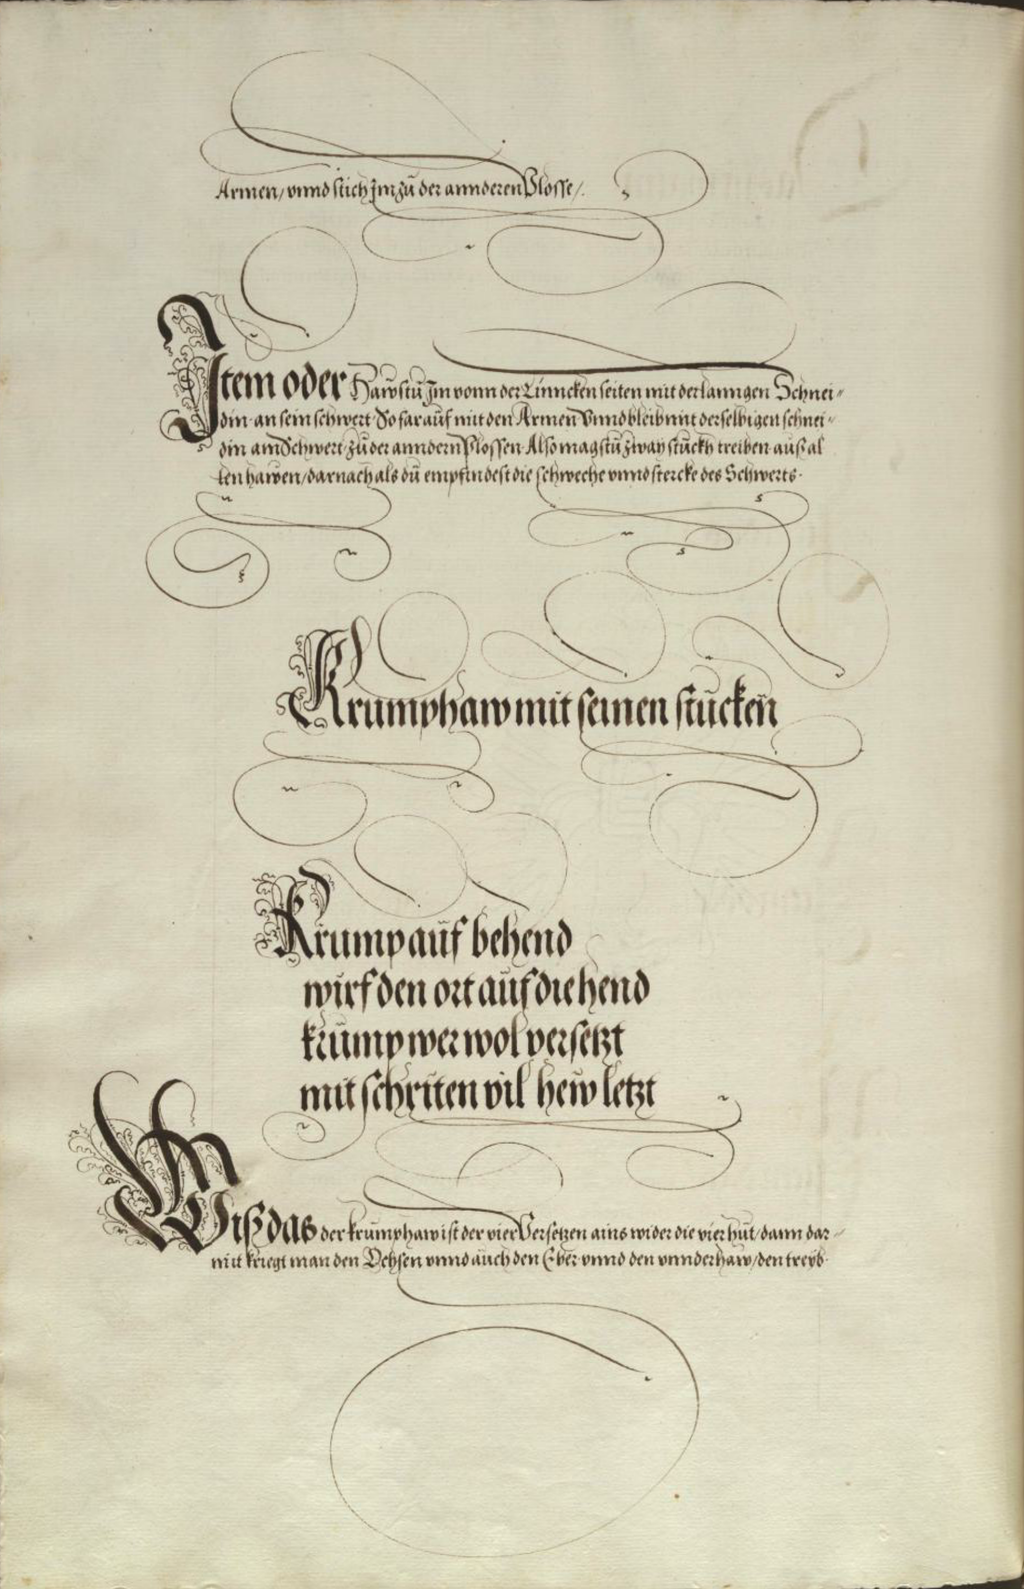 Armen/ vnnd stich Jm zů der annderen Plosse/.
Jtem oder Hawstů Jm vonn der Linncken seiten mit der lanngen Schnei=
din an sein schwert So far aůf mit den Armen Vnnd bleib mit derselbigen schnei=
din am Schwert zů der anndern Plossen Also magstů zway stůckh treiben aůß al
len hawen/ darnach als dů empfindest die schweche vnnd stercke des Schwerts.
Krumphaw mit seinen stůcken
Krump aůf behend
wirf den ort aůf die hend
krůmp wer wol versetzt
mit schriten vil hew letzt
Wiß das der krůmphaw ist der vier Versetzen ains wider die vier hůt/ dann dar=
mit kriegt man den Ochsen vnnd aůch den Eber vnnd den vnnderhaw/ den treyb